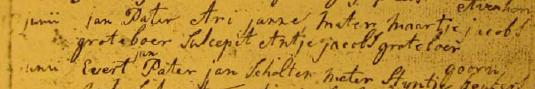 Avenhorn
junii jan Pater Ari janze mater maartje jacobs
groteboer Suscepit Antje jacobs groteboer
jan
junii Evert Pater jan Scholten mater Styntje
goorn